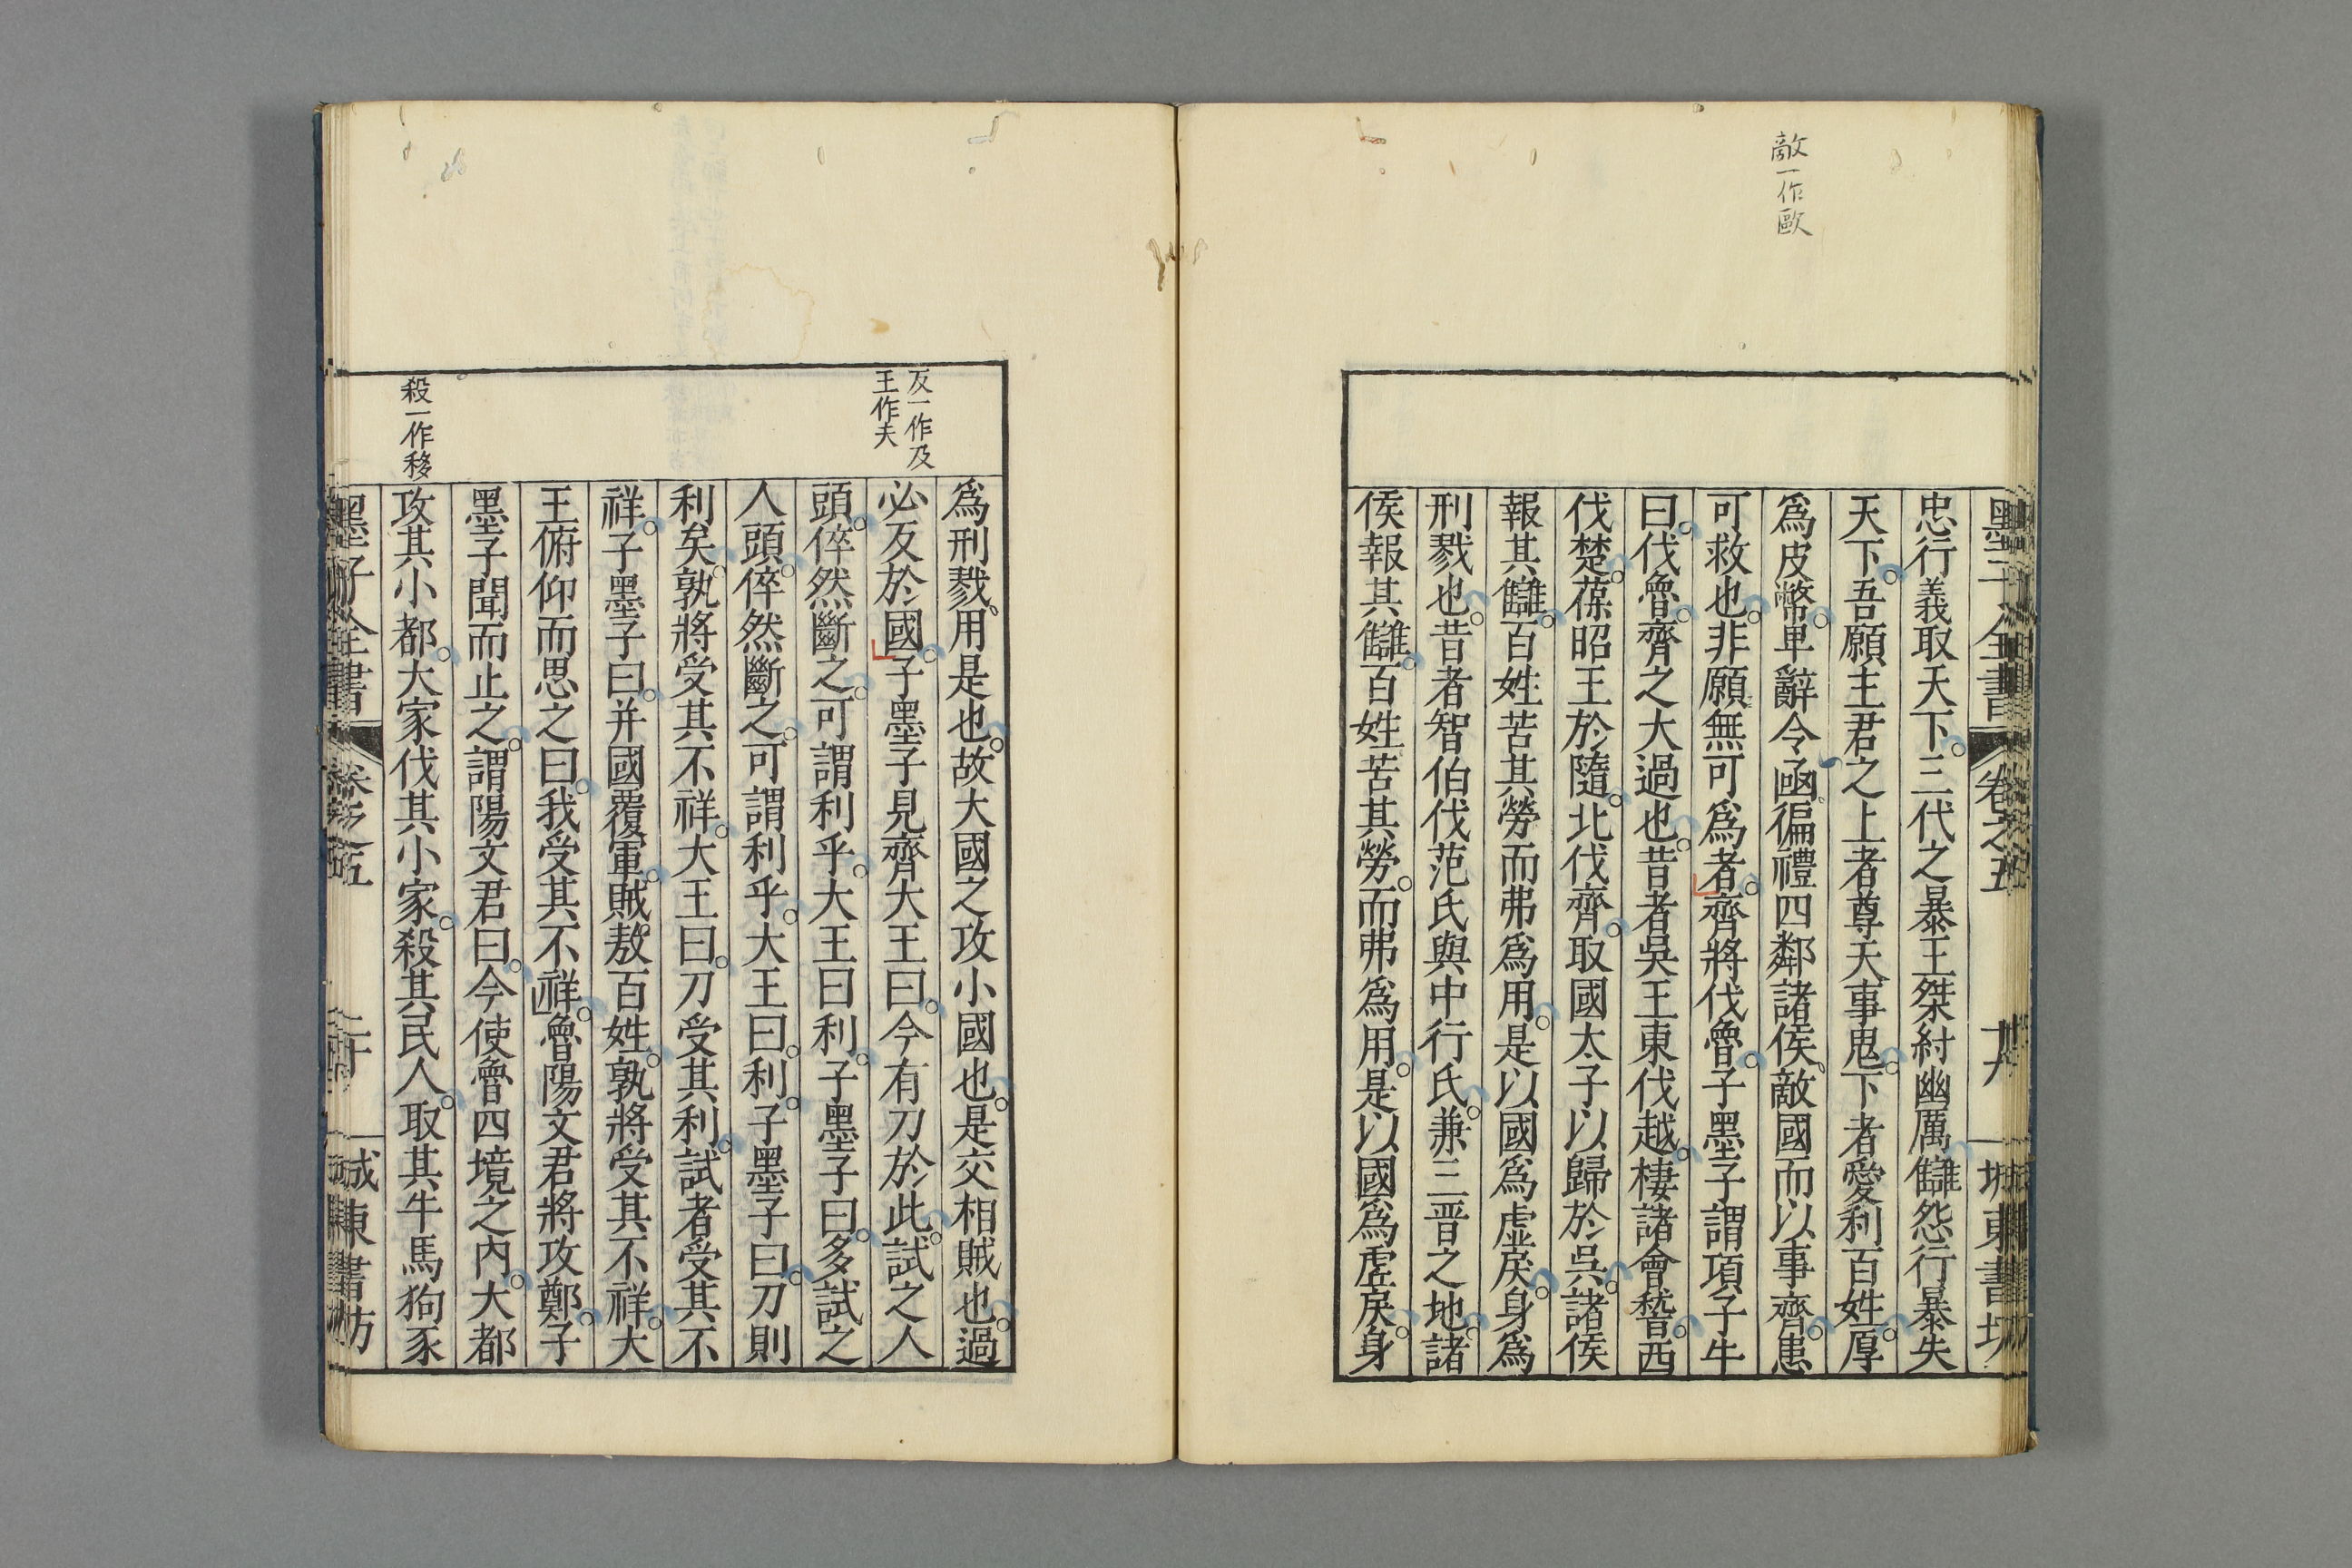 敵一作歐
墨子全書
卷之五
城東書坊
忠行義取天下。三代之暴王桀紂幽厲讎怨行暴失
天下。吾願主君之上者尊天事鬼。下者愛利百姓。厚
爲皮幣。卑辭令。凾徧禮四鄰諸侯。敵國而以事齊。患
可救也。非願無可爲者。齊將伐魯。子墨子謂項子牛
曰。伐魯。齊之大過也。昔者吳王東伐越。棲諸會稽。西
伐楚。葆昭王於隨。北伐齊。取國太子以歸於吳。諸侯
報其讎。百姓苦其勞而弗爲用。是以國爲虛戾。身爲
刑戮也。昔者智伯伐范氏與中行氏。兼三晋之地。諸
侯報其讎。百姓苦其勞。而弗爲用。是以國爲虛戾。身
爲刑戮。用是也。故大國之攻小國也。是交相賊也。過
反一作及
王作夫
必反於國。子墨子見齊大王曰。今有刀於此。試之人
頭。倅然斷之。可謂利乎。大王曰利。子墨子曰。多試之
人頭。倅然斷之。可謂利乎。大王曰。利。子墨子曰。刀則
利矣。孰將受其不祥。大王曰。刀受其利。試者受其不
祥。子墨子曰。并國覆軍。賊敖百姓。孰將受其不祥。大
王俯仰而思之曰。我受其不祥。魯陽文君將攻鄭。子
墨子聞而止之。謂陽文君曰。今使魯四境之內。大都
殺一作移
攻其小都。大家伐其小家。殺其民人。取其牛馬狗豕
墨子全書
卷之五
城東書坊